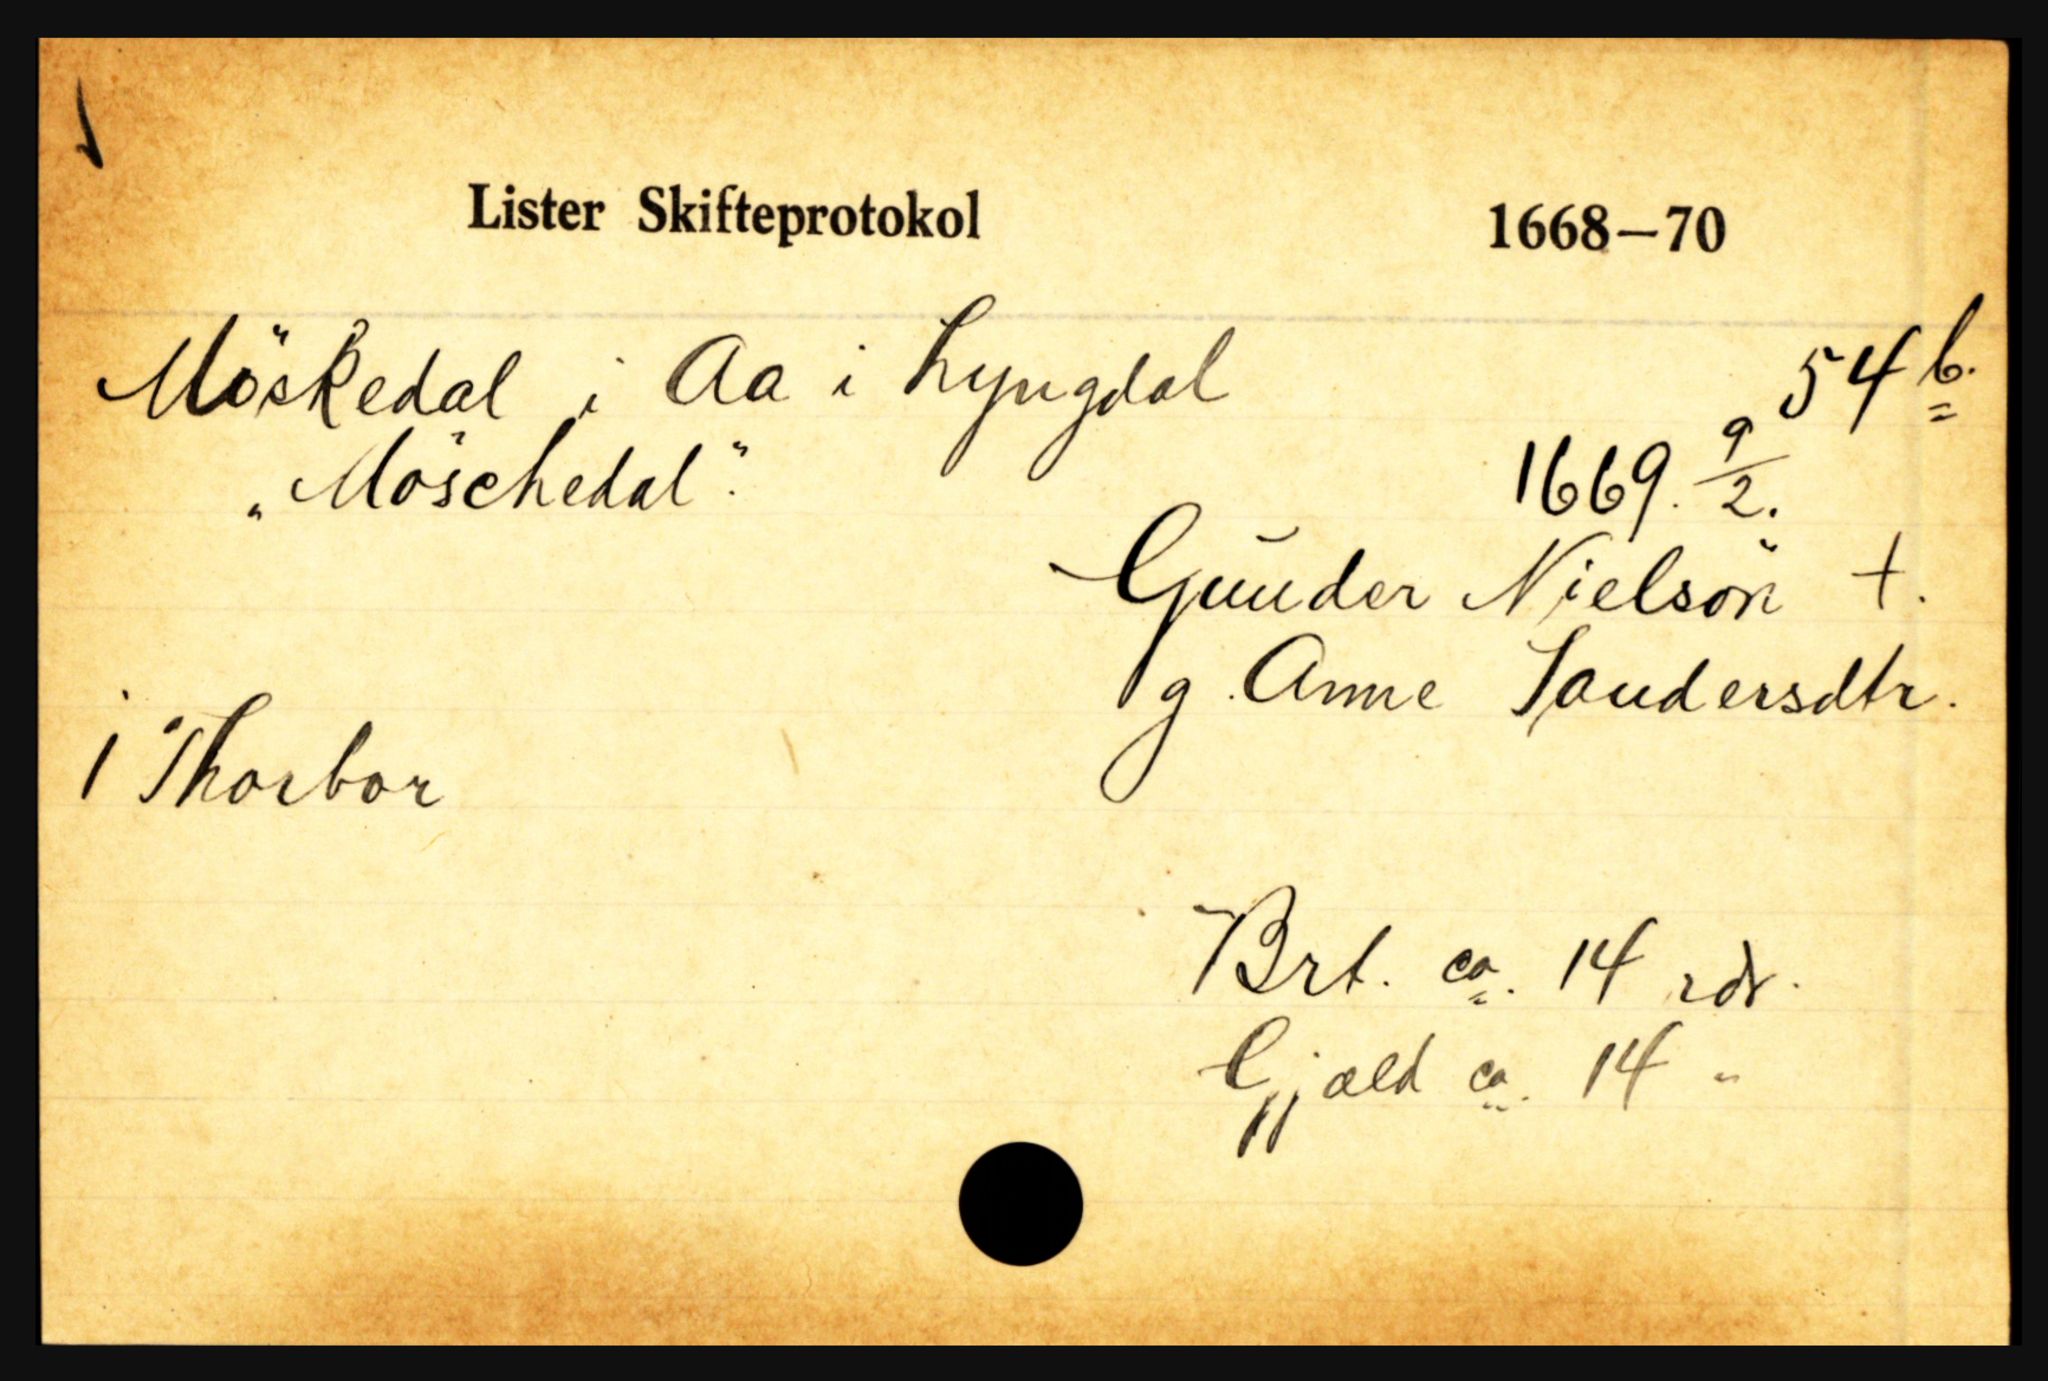 Lister Skifteprotokol 1668—70
Möskedal i Aa i Lyngdal 54 b.
"Möschedal". 1669. 9/2.
Guuder Nielsön +.
g. Anne Saudersdtr.
1 Thorbor
Brt. ca. 14 rdr.
Gjæld ca. 14 "